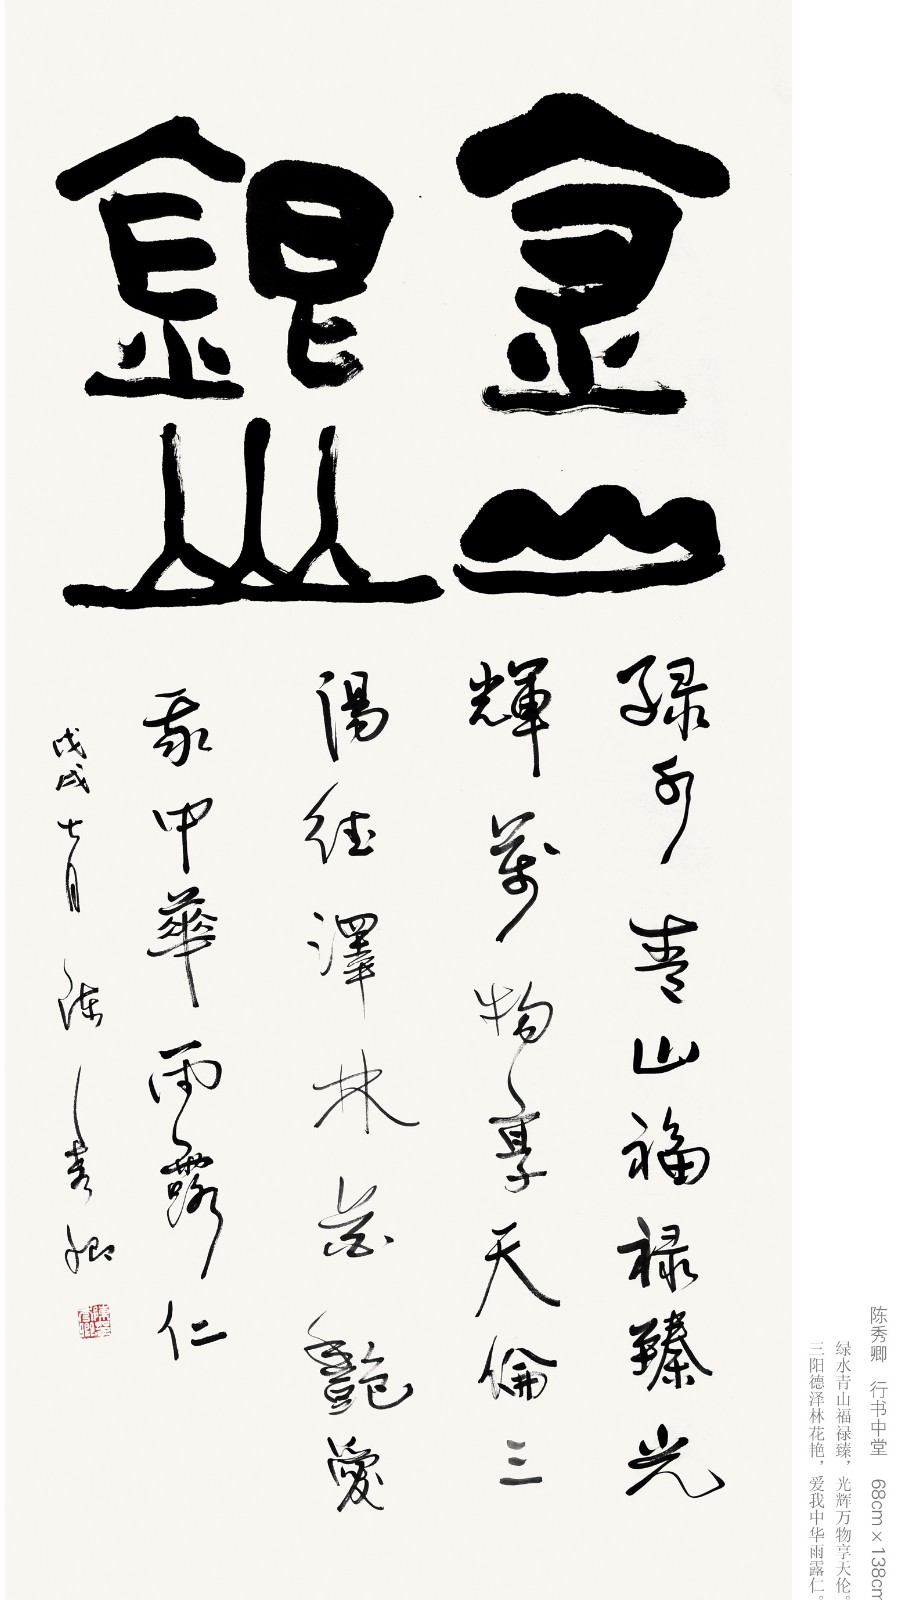 金山
銀山
綠水青山福祿臻光
輝萬物享天倫三
陽德澤林花艷愛
我中華雨露仁
戊戌七月陳秀卿
陈秀卿 行书中堂 68cm×138cm
绿水青山福禄臻，光辉万物享天伦。
三阳德泽林花艳，爱我中华雨露仁。